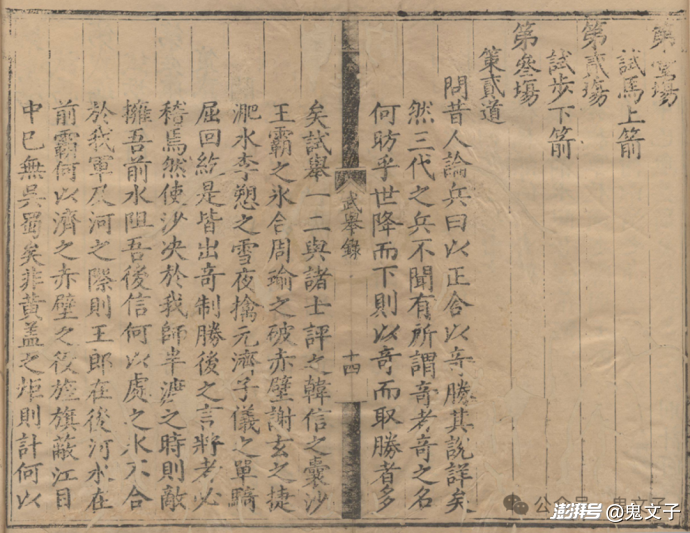 第壹場
試馬上箭
第貳場
試步下箭
第叄場
策貳道
問昔人論兵曰以正合以奇勝其說詳矣
然三代之兵不聞有所謂奇者奇之名
何昉乎世降而下則以奇而取勝者多
武舉錄
十四
矣試舉一二與諸士評之韓信之囊沙
王霸之氷合周瑜之破赤壁謝玄之捷
淝水李愬之雪夜擒元濟子儀之單騎
屈回紇是皆出奇制勝後之言將者必
稽焉然使沙决於我師半渡之時則敵
擁吾前水阻吾後信何以處之氷不合
於我軍及河之際則王郎在後河水在
前霸何以濟之赤壁之役旌旗蔽江目
中已無吳蜀矣非黃盖之炬則計何以
公众号·鬼文子
澎湃号@鬼文子